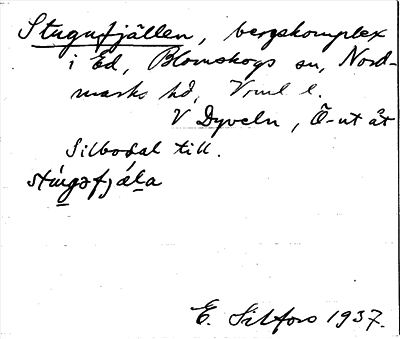 Stugufjällen, bergskomplex
i Ed, Blomskogs sn, Nord-
marks hd, Vrml l.
V Dyveln, Ö-ut åt
Silbodal till.
stúgəfjä́l̲a
E. Silfors 1937.